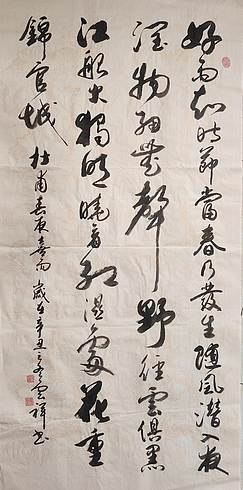 好雨知時節當春乃發生隨風潛入夜
潤物細無聲野徑雲俱黑
江船火獨明曉看紅濕處花重
錦官城 杜甫春夜喜雨 歲在辛丑之冬雲祥書